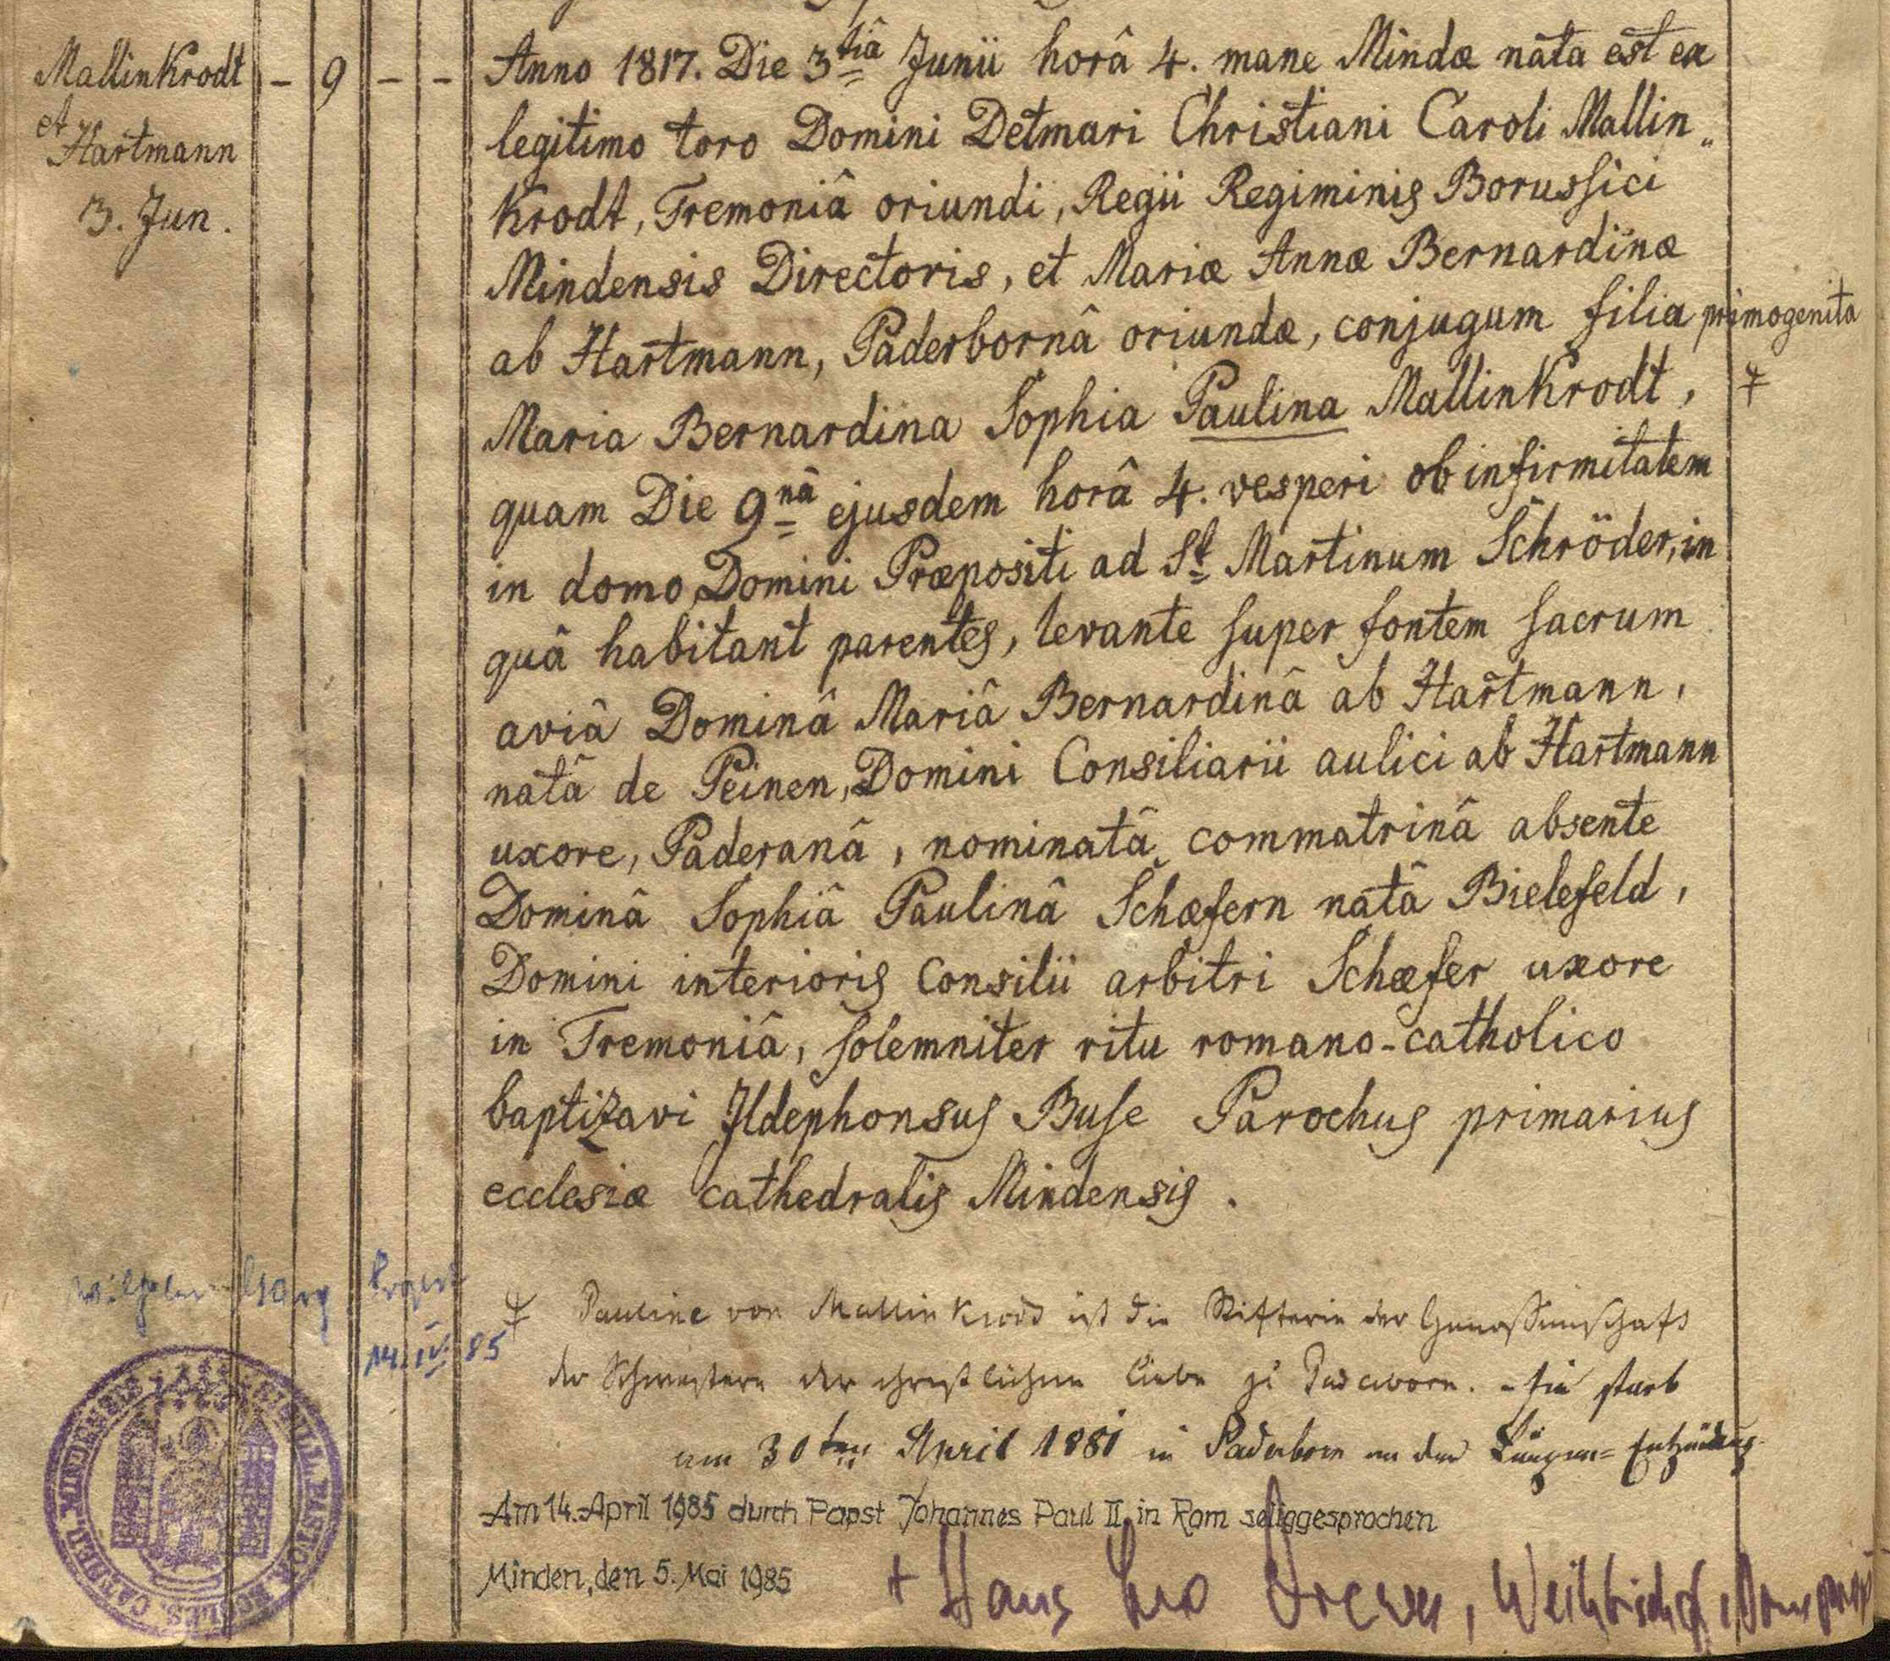 Mallinkrodt - 9 - -
et
Hartmann
3. Jun.
Anno 1817. Die 3tiâ Junii horâ 4. mane Mindæ nata est ex
legitimo toro Domini Detmari Christiani Caroli Mallin„
krodt, Tremoniâ oriundi, Regii Regiminis Borussici
Mindensis Directoris, et Mariæ Annæ Bernardinæ
ab Hartmann, Paderbornâ oriundæ, conjugum filia primogenita
Maria Bernardina Sophia Paulina Mallinkrodt,
quam Die 9nâ ejusdem horâ 4. vesperi ob infirmitatem
in domo Domini Præpositi ad St Martinum Schröder, in
quâ habitant parentes, levante super fontem sacrum
aviâ Dominâ Mariâ Bernardinâ ab Hartmann,
natâ de Peinen, Domini Consiliarii aulici ab Hartmann
uxore, Paderanâ, nominatâ commatrinâ absente
Dominâ Sophiâ Paulinâ Schæfern natâ Bielefeld,
Domini interioris Consilii arbitri Schæfer uxore
in Tremoniâ, solemniter ritu romano-catholico
baptizavi Ildephonsus Buse Parochus primarius
ecclesiæ cathedralis Mindensis.
Pauline von Mallinkrodt ist die Stifterin der Genossenschaft
der Schwestern der christlichen Liebe zu Paderborn. - Sie starb
am 30ten April 1881 in Paderborn an der Lungen= Entzündung
Am 14. April 1985 durch Papst Johannes Paul II. in Rom seliggesprochen
Minden, den 5. Mai 1985
+ Hans Leo Drewes, Weihbischof, Dompropst
Wilhelm Propst
14.IV.85